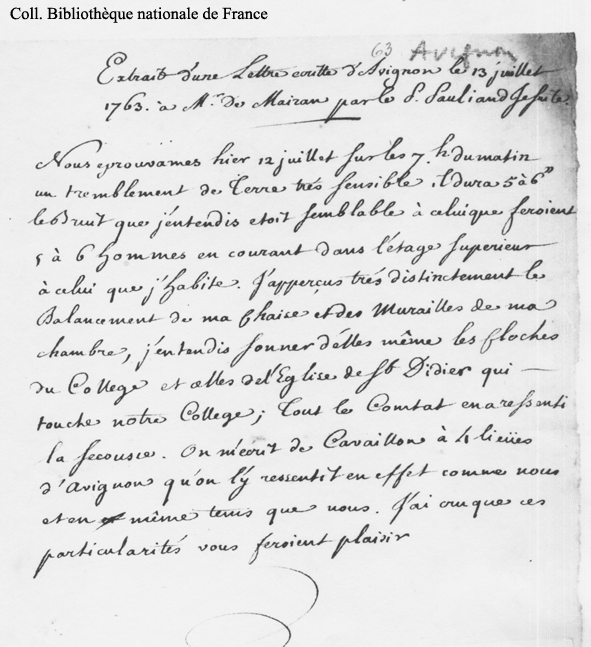 Coll. Bibliothèque nationale de France
63 Avignon
Extrait d'une Lettre ecritte d'Avignon le 13 juillet
1763. à Mr. de Mairan par le P. Pauliand Jesuite.
Nous eprouvames hier 12 juillet sur les 7. h. du matin
un tremblement de Terre trés sensible il dura 5 à 6"
le Bruit que j'entendis etoit semblable à celui que feroient
5 à 6 hommes en courant dans l'étage superieur
à celui que j'habite. J'apperçus trés distinctement le
Balancement de ma Chaise et des Murailles de ma
chambre, j'entendis sonner d'elles même les Cloches
du College et celles de l'Eglise de St Didier qui —
touche notre College; Tout le Comtat en a ressenti
la secousse. On m'ecrit de Cavaillon à 4 lieües
d'Avignon qu'on l'y ressentit en effet comme nous
et en même tems que nous. J'ai cru que ces
particularités vous feroient plaisir